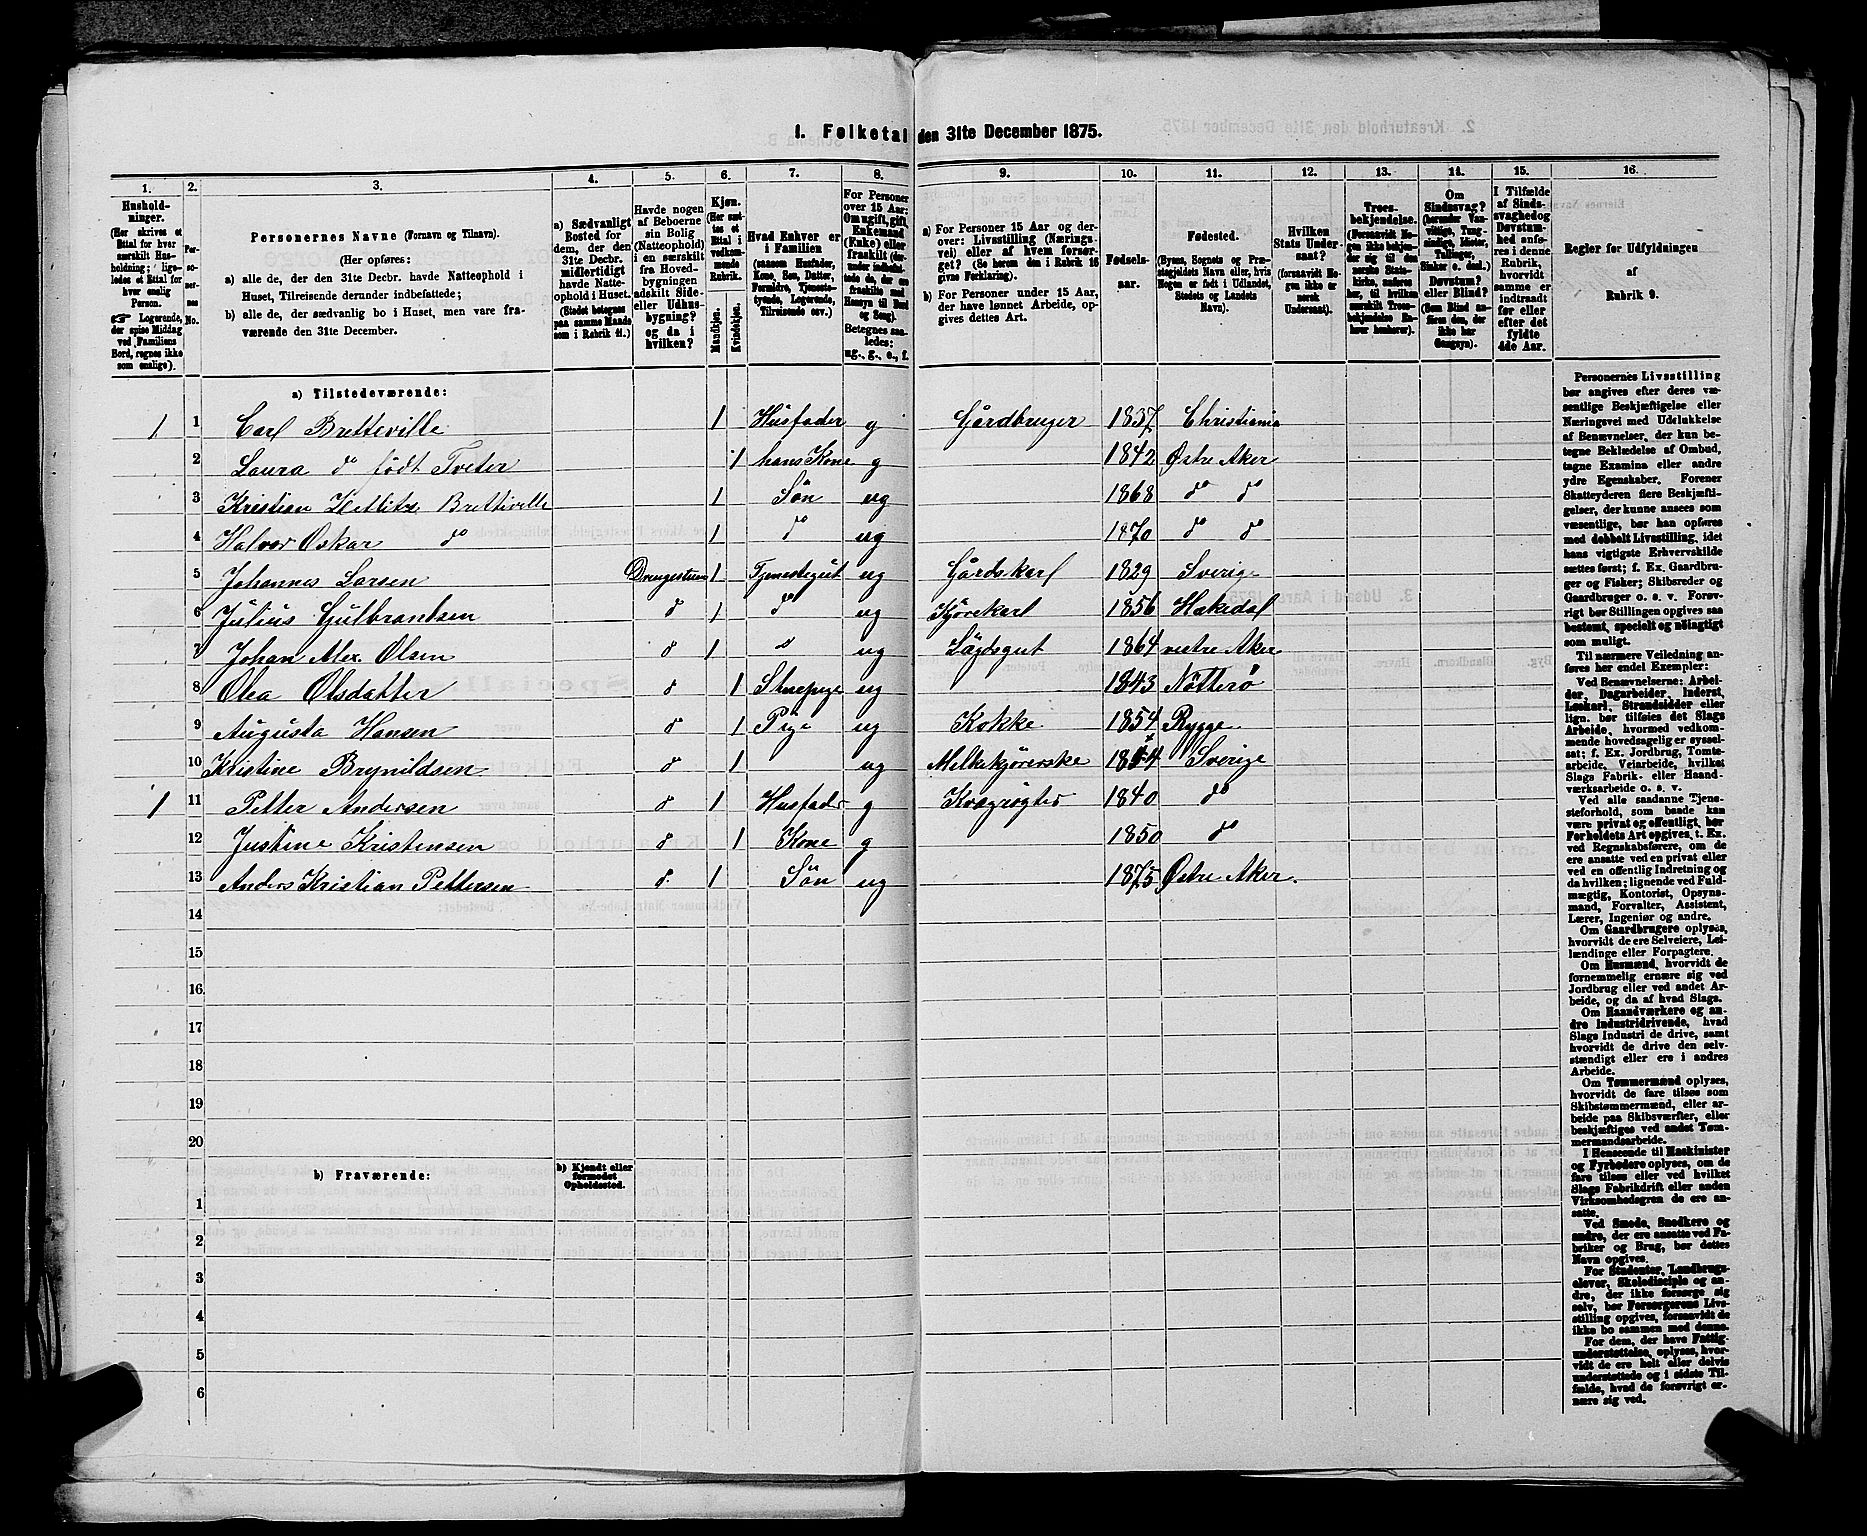 1. Folketal den 31te December 1875.
1. 2. 3. 4. 5. 6. 7. 8. 9. 10. 11. 12. 13. 14. 15. 16.
Hushold-
ninger.
(Her skrives et
Ettal for hver
særskilt Hus-
holdning; lige-
ledes et Ettal for
hver enslig
Person.
☞ Logerende,
der spise Middag
ved Familiens
Bord, regnes ikke
som enslige).
Per-
so-
ner-
nes
No.
Personernes Navne (Fornavn og Tilnavn).
(Her opføres:
a) alle de, der den 31te Decbr. havde Natteophold i
Huset, Tilreisende derunder indbefattede;
b) alle de, der sædvanlig bo i Huset, men vare fra-
værende den 31te December.
a) Sædvanligt
Bosted for
dem, der den
31te Decbr.
midlertidigt
havde Natte-
ophold i Huset.
(Stedet betegnes
paa samme Maade
som i Rubrik 11.)
Havde nogen
af Beboerne
sin Bolig
(Natteophold)
i en særskilt
fra Hoved-
bygningen
adskilt Side-
eller Udhus-
bygning?
og da i
hvilken?
Kjøn.
(Her sæt-
tes et
Ettal i
vedkom-
mende
Rubrik.
Mandkjøn.
Kvindekjøn.
Hvad Enhver er
i Familien
(saasom Husfader,
Kone, Søn, Datter,
Forældre, Tjeneste-
tyende, Logerende,
Tilreisende osv.)
For Personer
over 15 Aar:
Om ugift, gift,
Enkemand
(Enke) eller
fraskilt
Betegnes saa-
ledes:
ug., g., e., f.
a) For Personer 15 Aar og der-
over: Livsstilling (Nærings-
vei) eller af hvem forsør-
get? (Se herom den i Rubrik 16
givne Forklaring).
b) For Personer under 15 Aar,
der have lønnet Arbeide, op-
gives dettes Art.
Fødsels-
aar.
Fødested.
(Byens, Sognets og Præ-
stegjeldets Navn eller, hvis
Nogen er født i Udlandet,
Stedets og Landets
Navn).
Hvilken
Stats Under-
saat?
(forsaavidt No-
gen ikke er
norsk
Undersaat).
Troes-
bekjendelse.
(Forsaavidt No-
gen ikke bekjen-
der sig til den
norske Stats-
kirke, anføres
her, til hvilken
særskilt Troes-
bekjendelse En-
hver henhører).
Om
Sindssvag?
(herunder Van-
vittige, Tung-
sindige, Idioter,
Tullinger,
Sinker o. desl.)
Døvstum?
eller Blind?
(Som Blind an-
føres den, der
ikke har
Gangsyn).
I Tilfælde
af Sinds-
svaghed og
Døvstum-
hed anfø-
res i denne
Rubrik,
hvorvidt
samme er
indtraadt
før eller
efter det
fyldte
4de Aar.
Regler for Udfyldningen
af
Rubrik 9.
a) Tilstedeværende:
1 1 Carl Bretteville 1 Husfader g Gårdbruger 1837 Christiania
2 Laura do født Tveter 1 hans Kone g 1842 Østre Aker
3 Kristian Bretteville 1 Søn ug 1868 do do
4 Halvor Oskar do 1 do ug 1870 do do
5 Johannes Larsen Drengestuen 1 Tjenestegut ug Gårdskarl 1829 Sverige
6 Julius Gulbrandsen do 1 do ug Kjørekarl 1856 Hakedal
7 Johan Alex. Olsen do 1 do ug Lægdsgut 1864 vestre Aker
8 Olea Olsdatter do 1 Stuepige ug 1843 Nøtterø
9 Augusta Hansen do 1 Pige ug Kokke 1854 Rygge
10 Kristine Brynildsen do 1 ug Melkekjørerske Sverige
1 11 Petter Andersen do 1 Husfader g Kvægrøgter 1840 do
12 Justine Kristensen do 1 Kone g 1850 do
13 Anders Kristian Pettersen do 1 Søn ug 1875 Østre Aker.
14
15
16
17
18
19
20
b) Fraværende:
b) Kjendt eller
formodet
Opholdssted.
1
2
3
4
5
6
Personernes Livsstilling
bør angives efter deres væ-
sentlige Beskjæftigelse eller
Næringsvei med Udelukkelse
af Benævnelser, der kun be-
tegne Beklædelse af Ombud,
tagne Examina eller andre
ydre Egenskaber. Forener
Skatteyderen flere Beskjæfti-
gelser, der kunne ansees som
væsentlige, bør han opføres
med dobbelt Livsstilling, idet
hans vigtigste Erhvervskilde
sættes først; f. Ex. Gaardbru-
ger og Fisker; Skibsreder og
Gaardbruger o. s. v. Forøv-
rigt bør Stillingen opgives saa
bestemt, specielt og nøiagtigt
som muligt.
Til nærmere Veiledning an-
føres her endel Exempler:
Ved Benævnelserne: Arbei-
der, Dagarbeider, Inderst,
Løskarl, Strandsidder eller
lign. bør tilføies det Slags
Arbeide, hvormed vedkom-
mende hovedsagelig er syssel-
sat; f. Ex. Jordbrug, Tomte-
arbeide, Veiarbeide, hvilket
Slags Fabrik- eller Haand-
værksarbeide o. s. v.
Ved alle saadanne Tjene-
steforhold, som baade kan
være privat og offentligt, bør
Forholdets Art opgives, t. Ex.
ved Regnskabsførere, om de
ere ansatte ved en privat eller
ved en offentlig Indretning og
da hvilken; lignende ved Fuld-
mægtig, Kontorist, Opsyns-
mand, Forvalter, Assistent,
Lærer, Ingeniør og andre.
Om Gaardbrugere oplyses,
hvorvidt de ere Selveiere, Lei-
lændinge eller Forpagtere.
Om Husmænd, hvorvidt de
fornemmelig ernære sig ved
Jordbrug eller ved andet Ar-
beide, og da af hvad Slags.
Om Haandværkere og an-
dre Industridrivende, hvad
Slags Industri de drive, samt
hvorvidt de drive den selv-
stændigt eller ere i andres
Arbeide.
Om Tømmermænd oplyses,
hvorvidt de fare tilsøs som
Skibstømmermænd, eller ar-
beide paa Skibsværfter, eller
beskjæftiges ved andet Tøm-
mermandsarbeide.
I Henseende til Maskinister
og Fyrbødere oplyses, om de
fare tilsøs eller ved hvilket
Slags Fabrikdrift eller anden
Virksomhedsgren de ere an-
satte.
Ved Smede, Snedkere og
andre, der ere ansatte ved Fa-
briker og Brug, bør dettes
Navn opgives.
For Studenter, Landbrugs-
elever, Skoledisciple og an-
dre, der ikke forsørge sig
selv, bør Forsørgerens Livs-
stilling opgives, forsaavidt de
ikke bo sammen med denne.
For dem, der have Fattig-
understøttelse, oplyses, hvor-
vidt de ere helt eller delvis
understøttede og i sidste Til-
fælde, hvad de forøvrigt er-
nære sig ved.